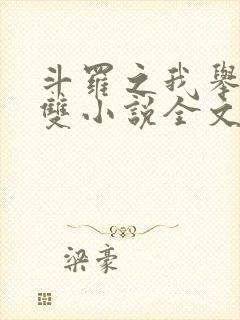 斗羅之我舉
雙小說全文
梁豪